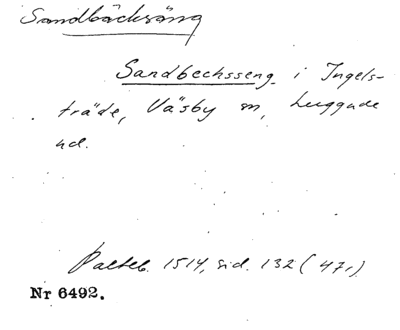 Sandbäcksäng
Sandbechsseng i Ingels-
träde, Väsby sn, Luggude
hd.
Palteb. 1514, sid. 132 (471)
Nr 6492.